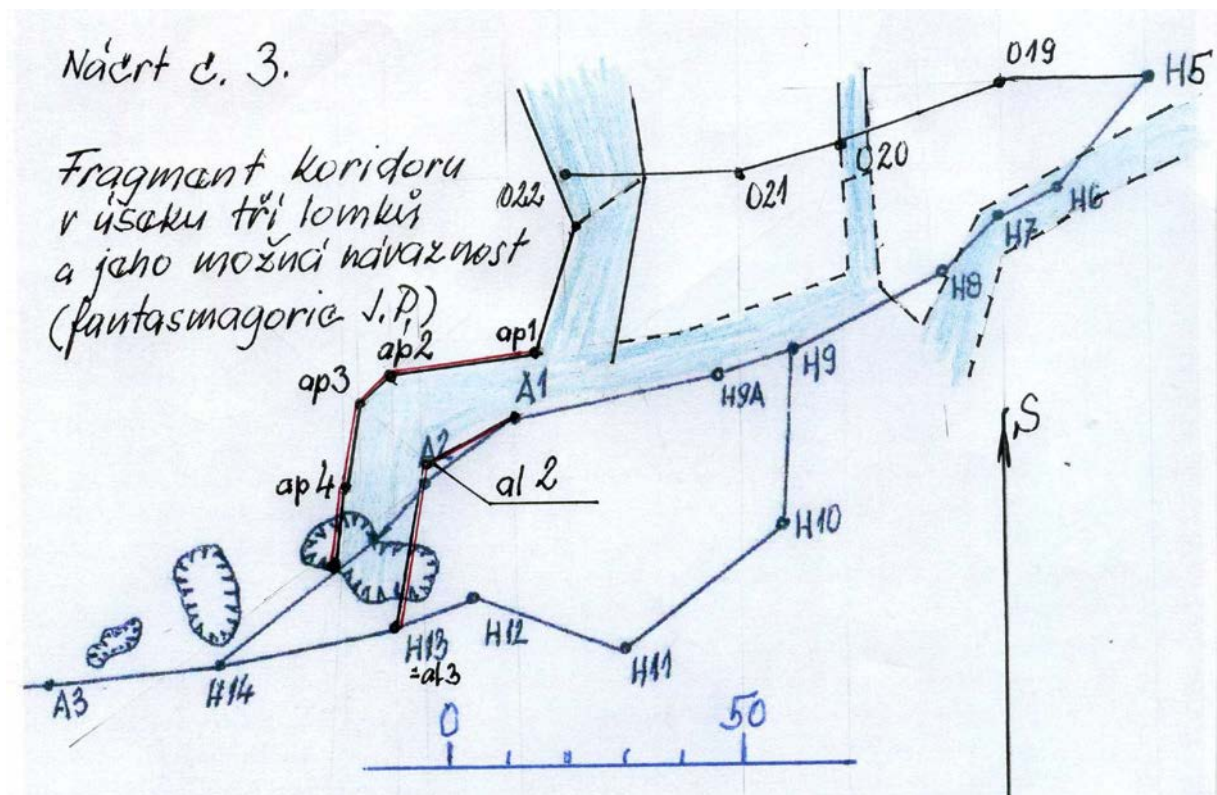 Náčrt č. 3.
Fragment koridoru
v úseku tří lomků
a jeho možná návaznost
(fantasmagorie J.P.)
O19
H5
O20
O21
O22
H6
H7
H8
ap1
ap2
ap3
A1
H9A
H9
A2
ap4
al 2
H10
H12
H13
=al3
H11
H14
A3
S
0
50